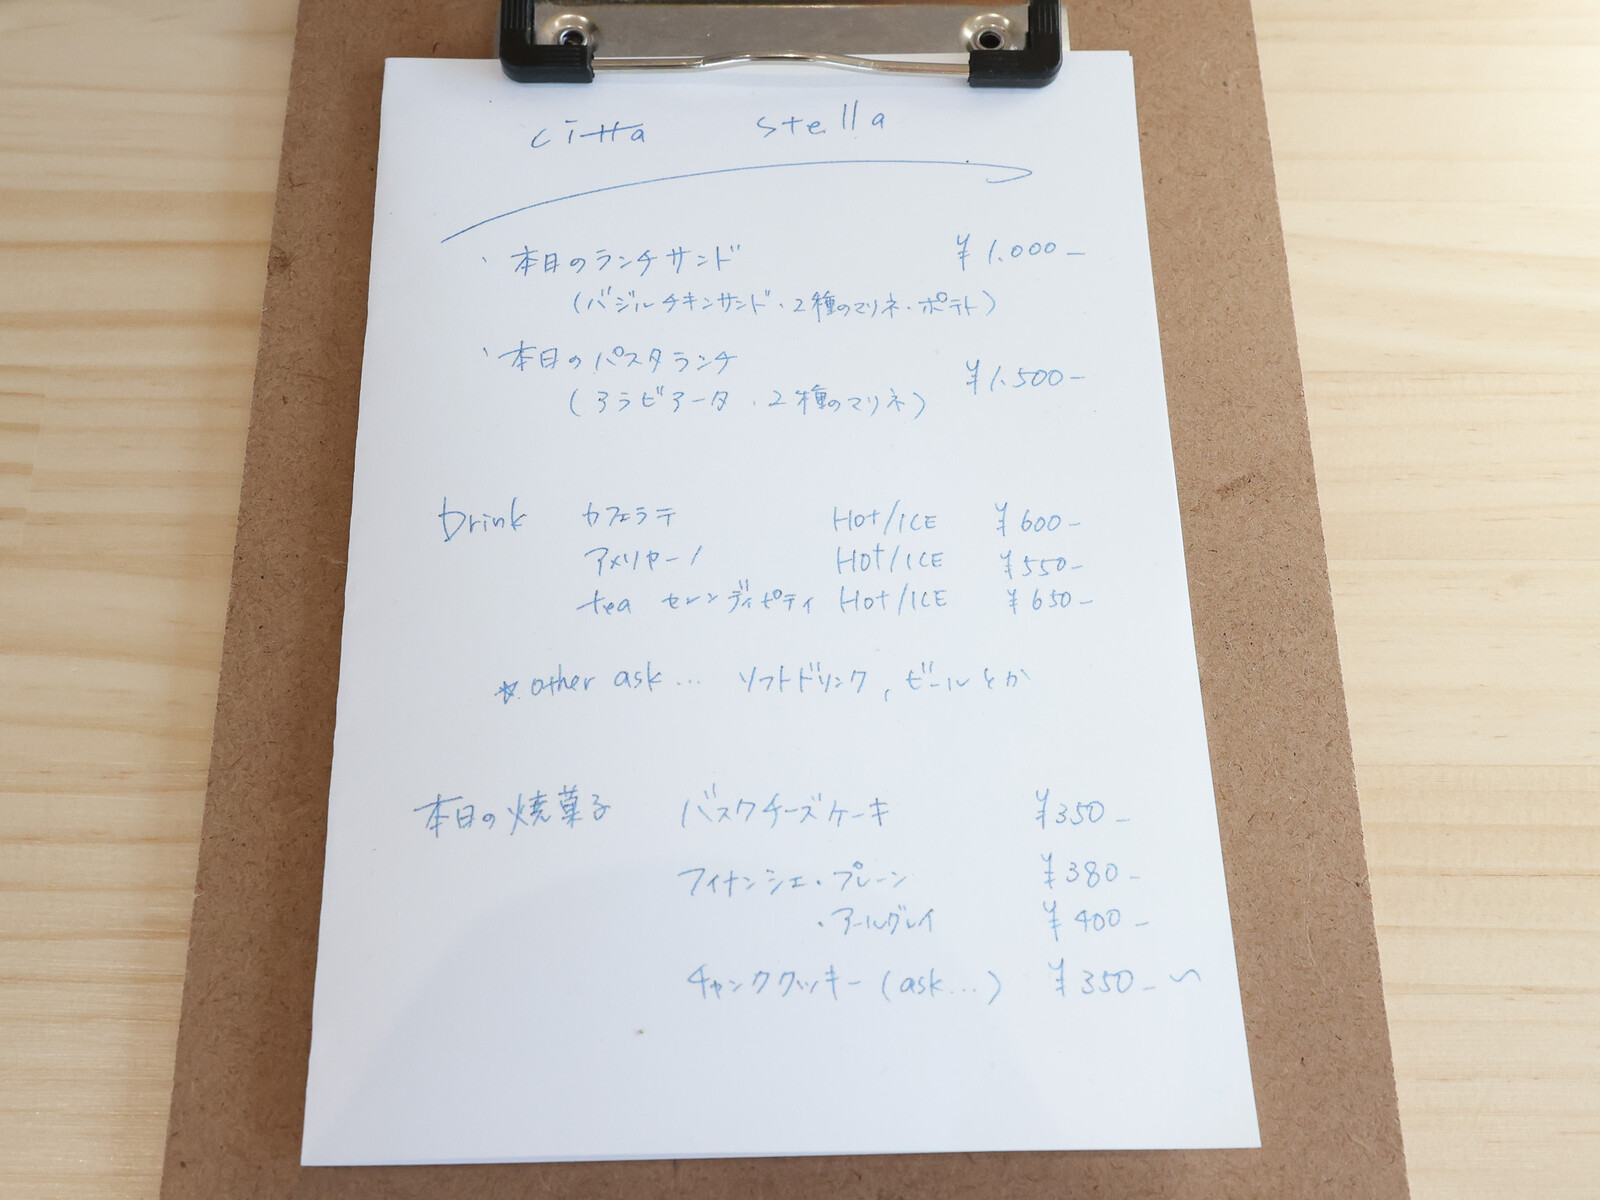 citta stella
・本日のランチサンド ¥1.000-
(バジルチキンサンド・2種のマリネ・ポテト)
・本日のパスタランチ ¥1.500-
(アラビアータ・2種のマリネ)
Drink カフェラテ Hot/ICE ¥600-
アメリカーノ Hot/ICE ¥550-
tea セレンディピティ Hot/ICE ¥650-
☆other ask... ソフトドリンク,ビールとか
本日の焼菓子 バスクチーズケーキ ¥350-
フィナンシェ・プレーン ¥380-
・アールグレイ ¥400-
チャンククッキー(ask...) ¥350-〜